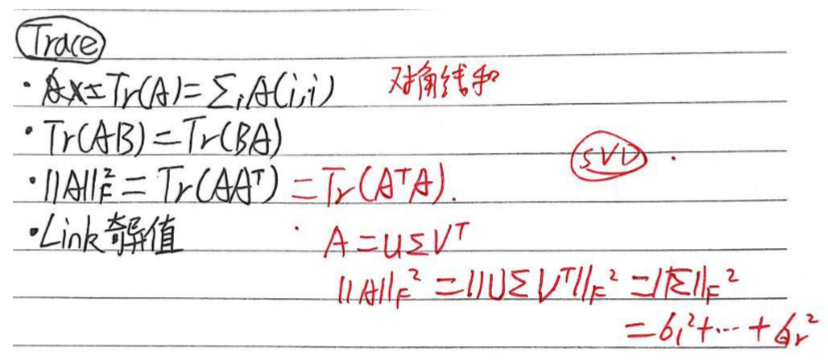 Trace
· Tr(A)=ΣᵢA(i,i) 对角线和
· Tr(AB)=Tr(BA)
SVD
· ||A||_F² = Tr(AAᵀ) = Tr(AᵀA).
· Link奇异值 · A=UΣVᵀ
||A||_F² = ||UΣVᵀ||_F² = ||Σ||_F²
= σ₁²+⋯+σᵣ²